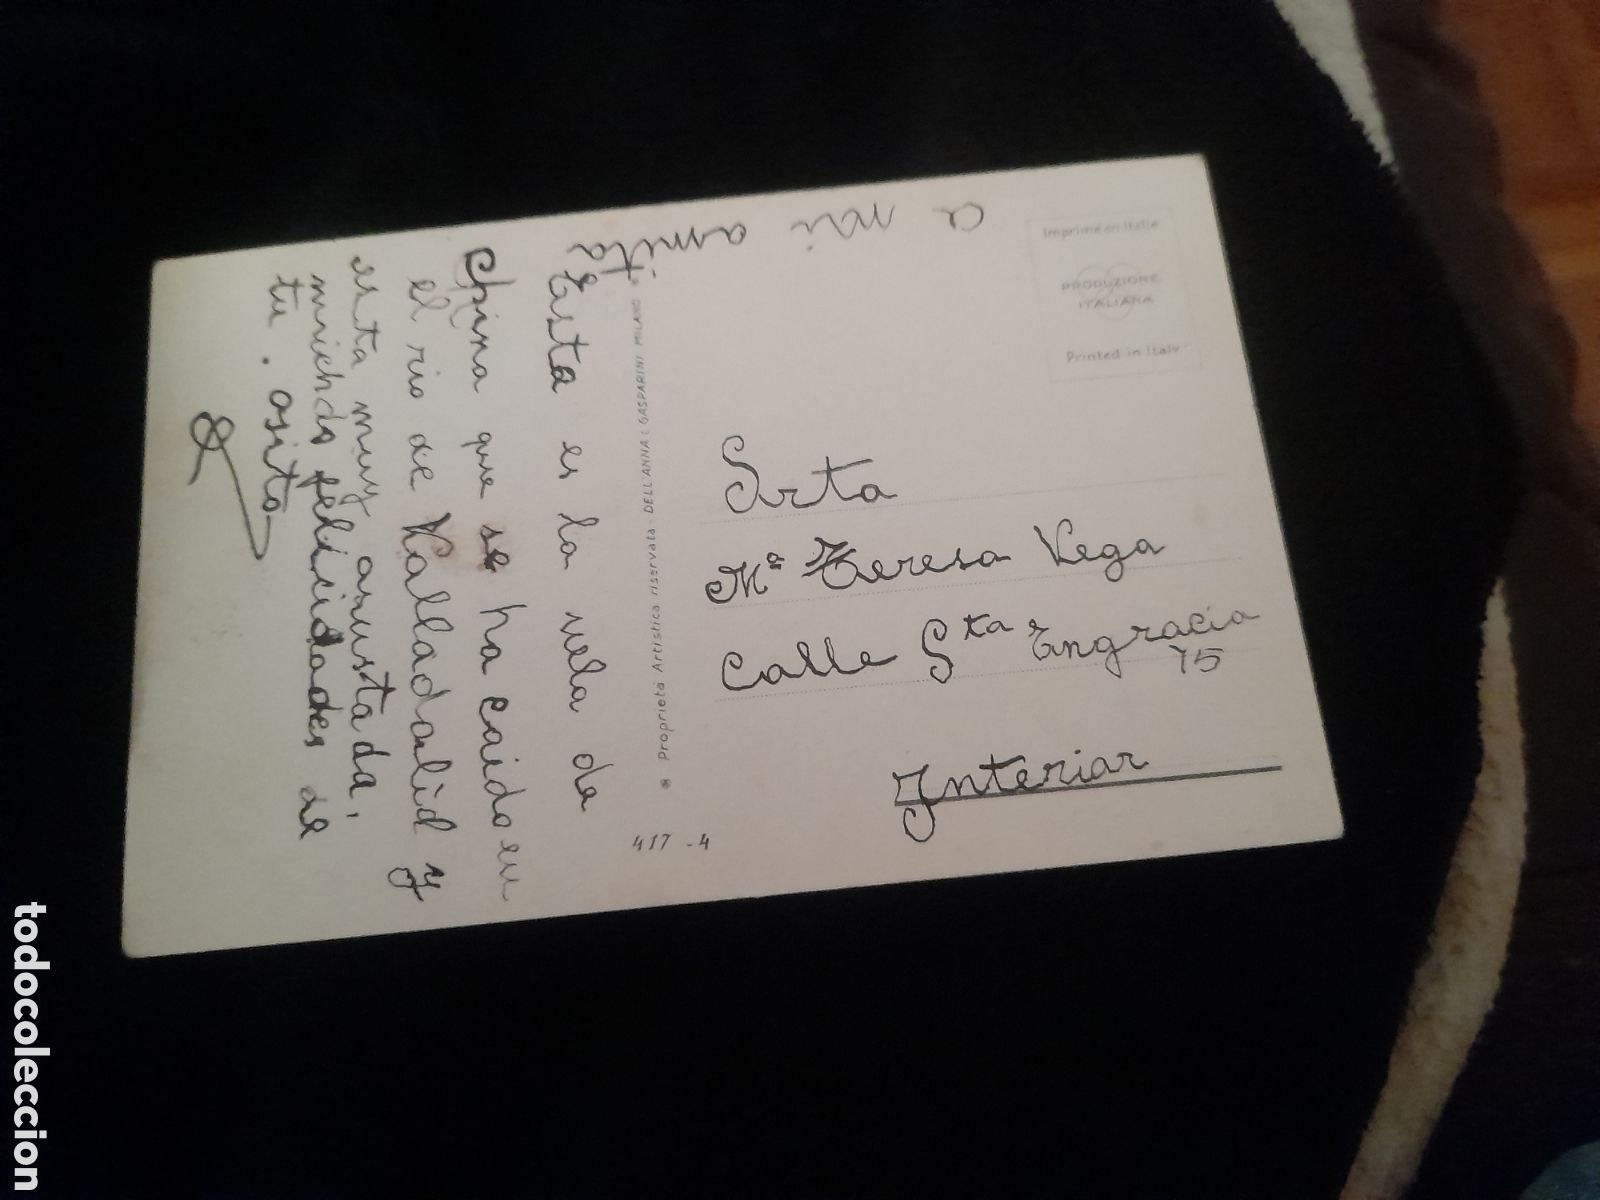 a mi amita
Esta es la nela de
China que se ha caido en
el rio de Valladolid y
esta muy asustada.
muchds felicidades de
tu . osito
Proprietà Artistica riservata - DELL'ANNA & GASPARINI MILANO
417 - 4
Imprimé en Italie
PRODUZIONE
ITALIANA
Printed in Italy
Srta
Mª Teresa Vega
Calle Sta Engracia
15
Interiar
todocoleccion